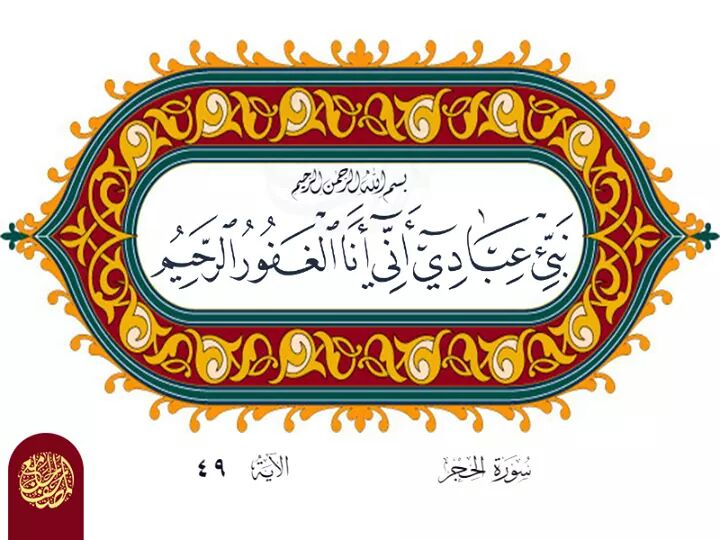 بسم الله الرحمن الرحيم
نَبِّئْ عِبَادِيٓ أَنِّيٓ أَنَا ٱلْغَفُورُ ٱلرَّحِيمُ
سُورَة الحِجْر
الآيَة ٤٩